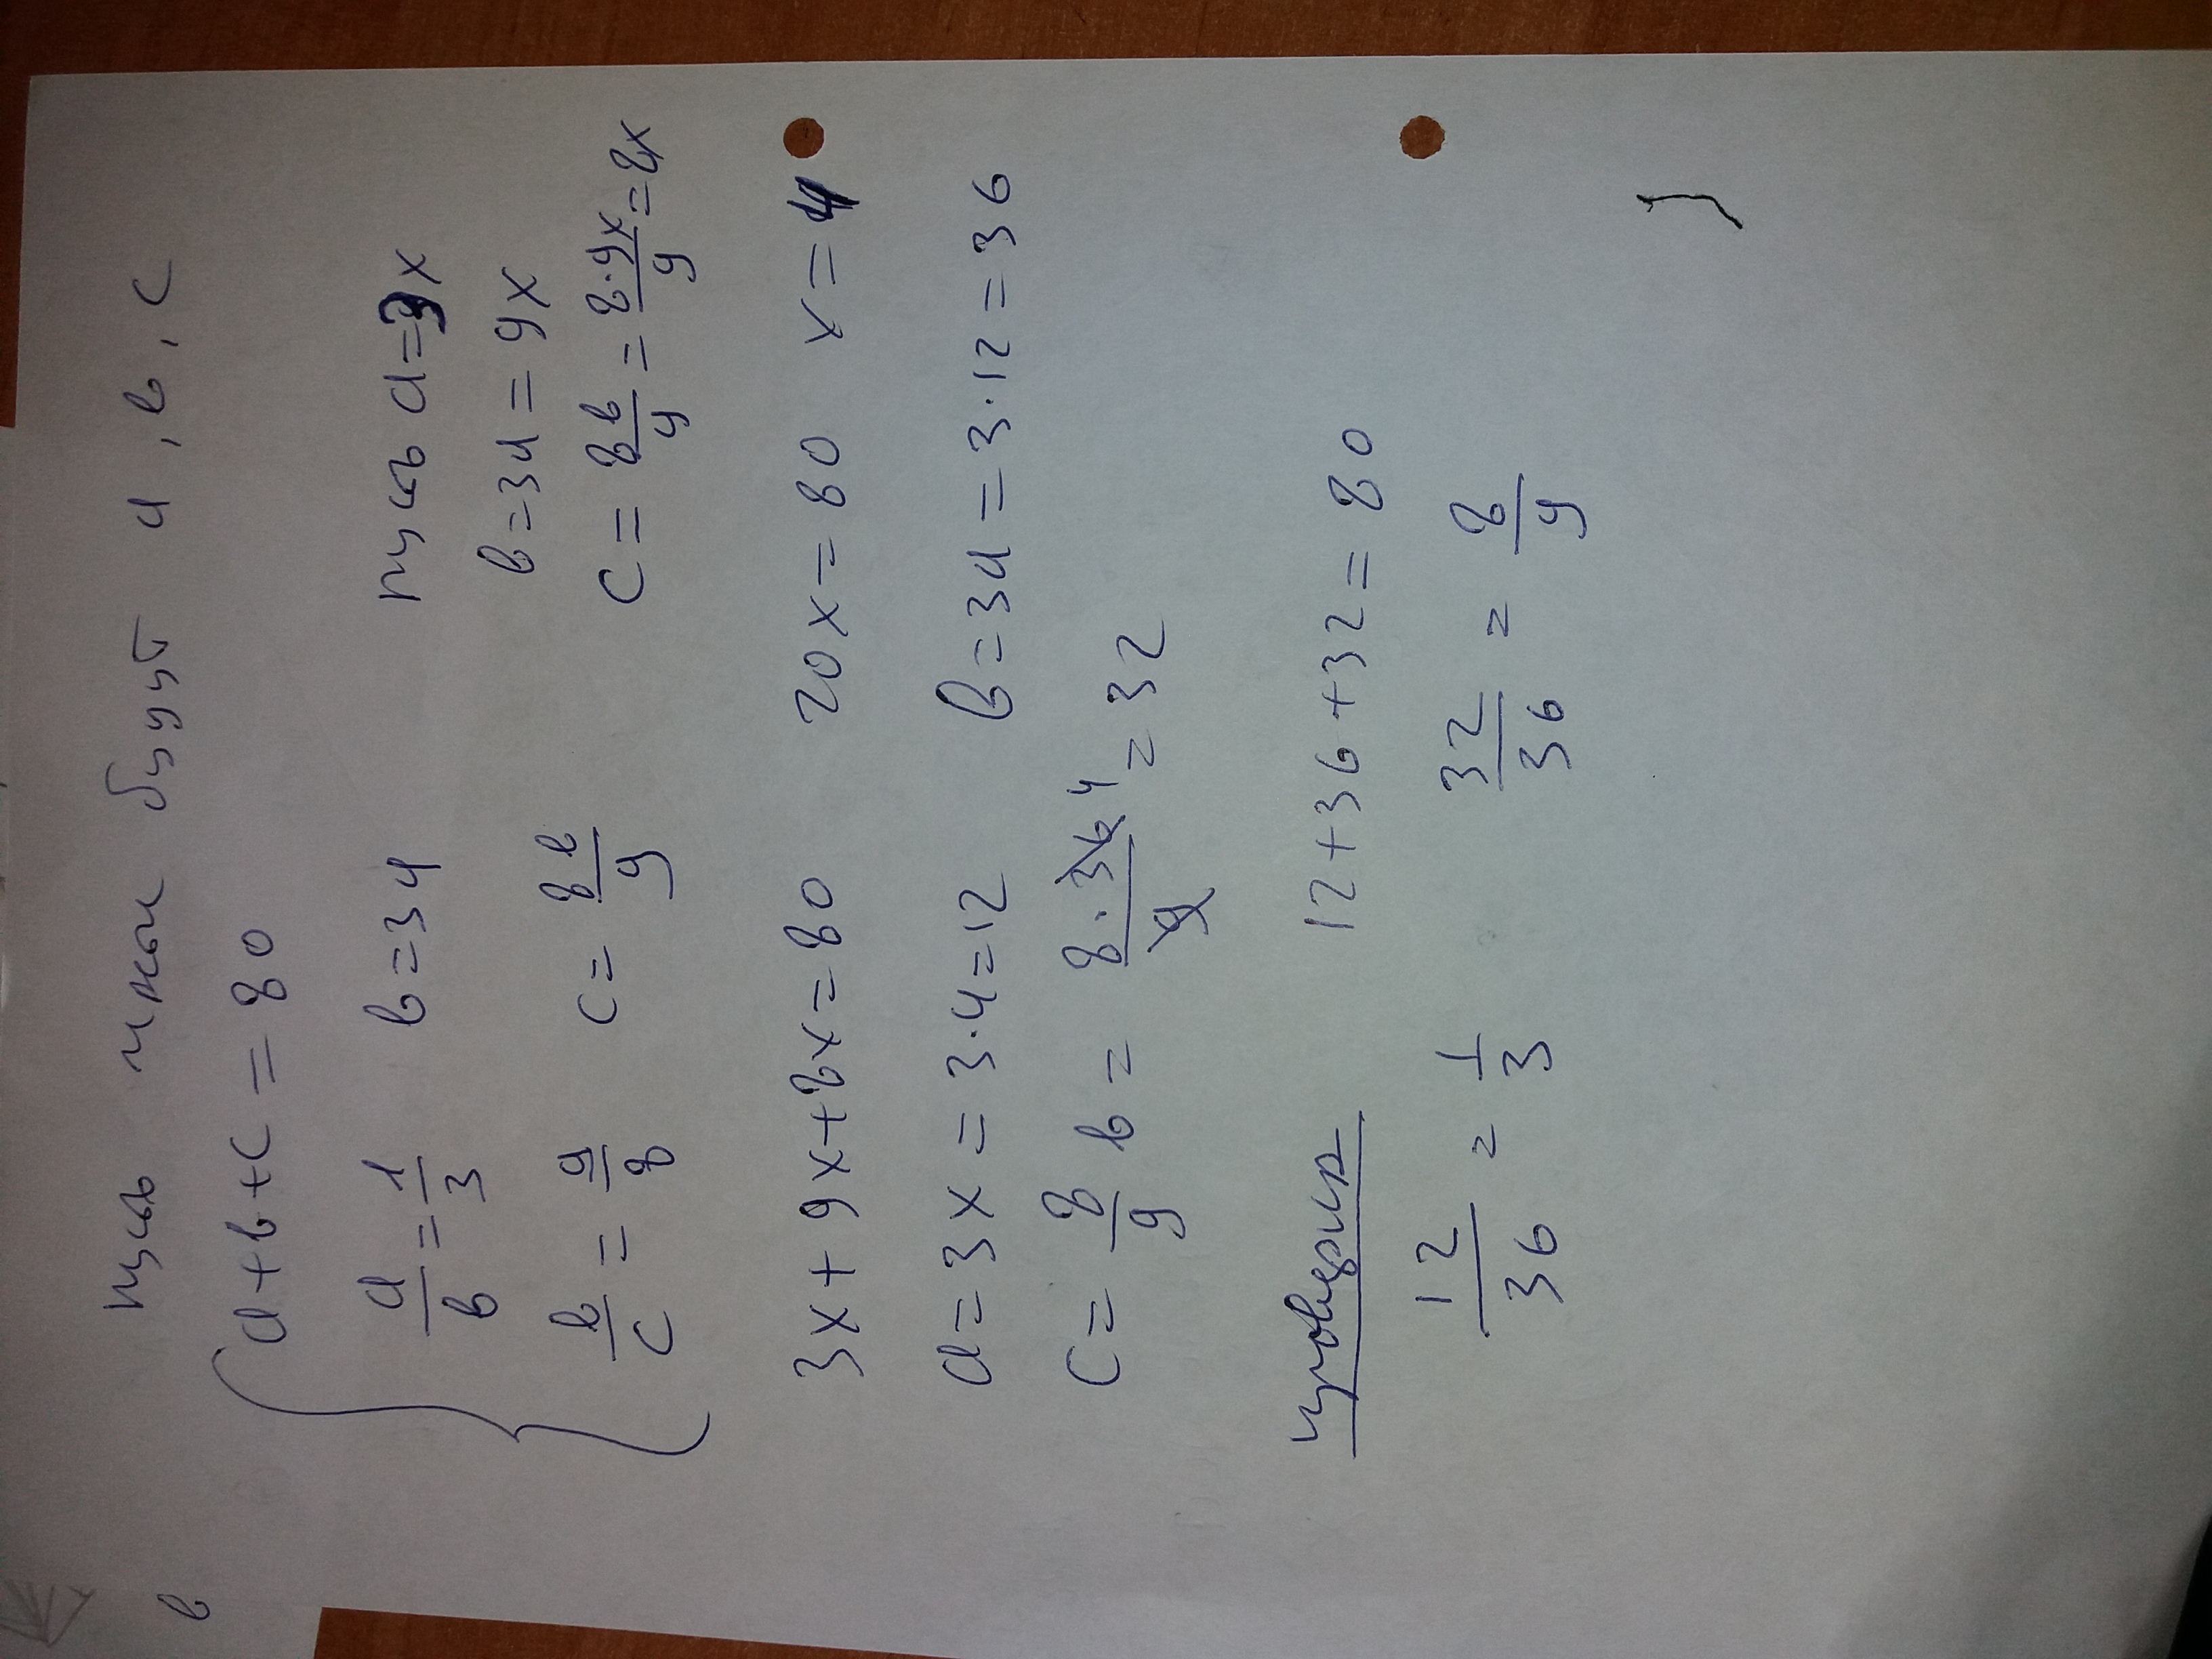 пусть числа будут a, b, c
в
a+b+c=80
a/b=1/3 b=3a пусть a=3x
b=3a=9x
b/c=9/8 c=8b/9 c=8b/9=8·9x/9=8x
3x+9x+8x=80 20x=80 x=4
a=3x=3·4=12 b=3a=3·12=36
c=8/9 b=8·36/9 4 =32
проверка 12+36+32=80
12/36=1/3 32/36=8/9